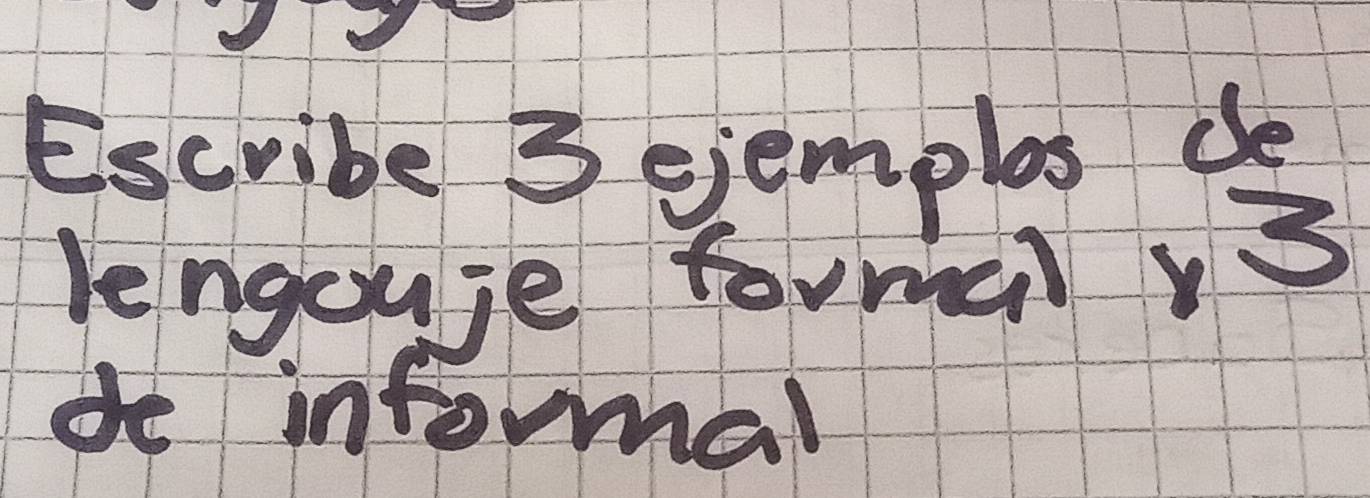 Escribe 3 ejemplos de
lengouje formal y 3
de informal